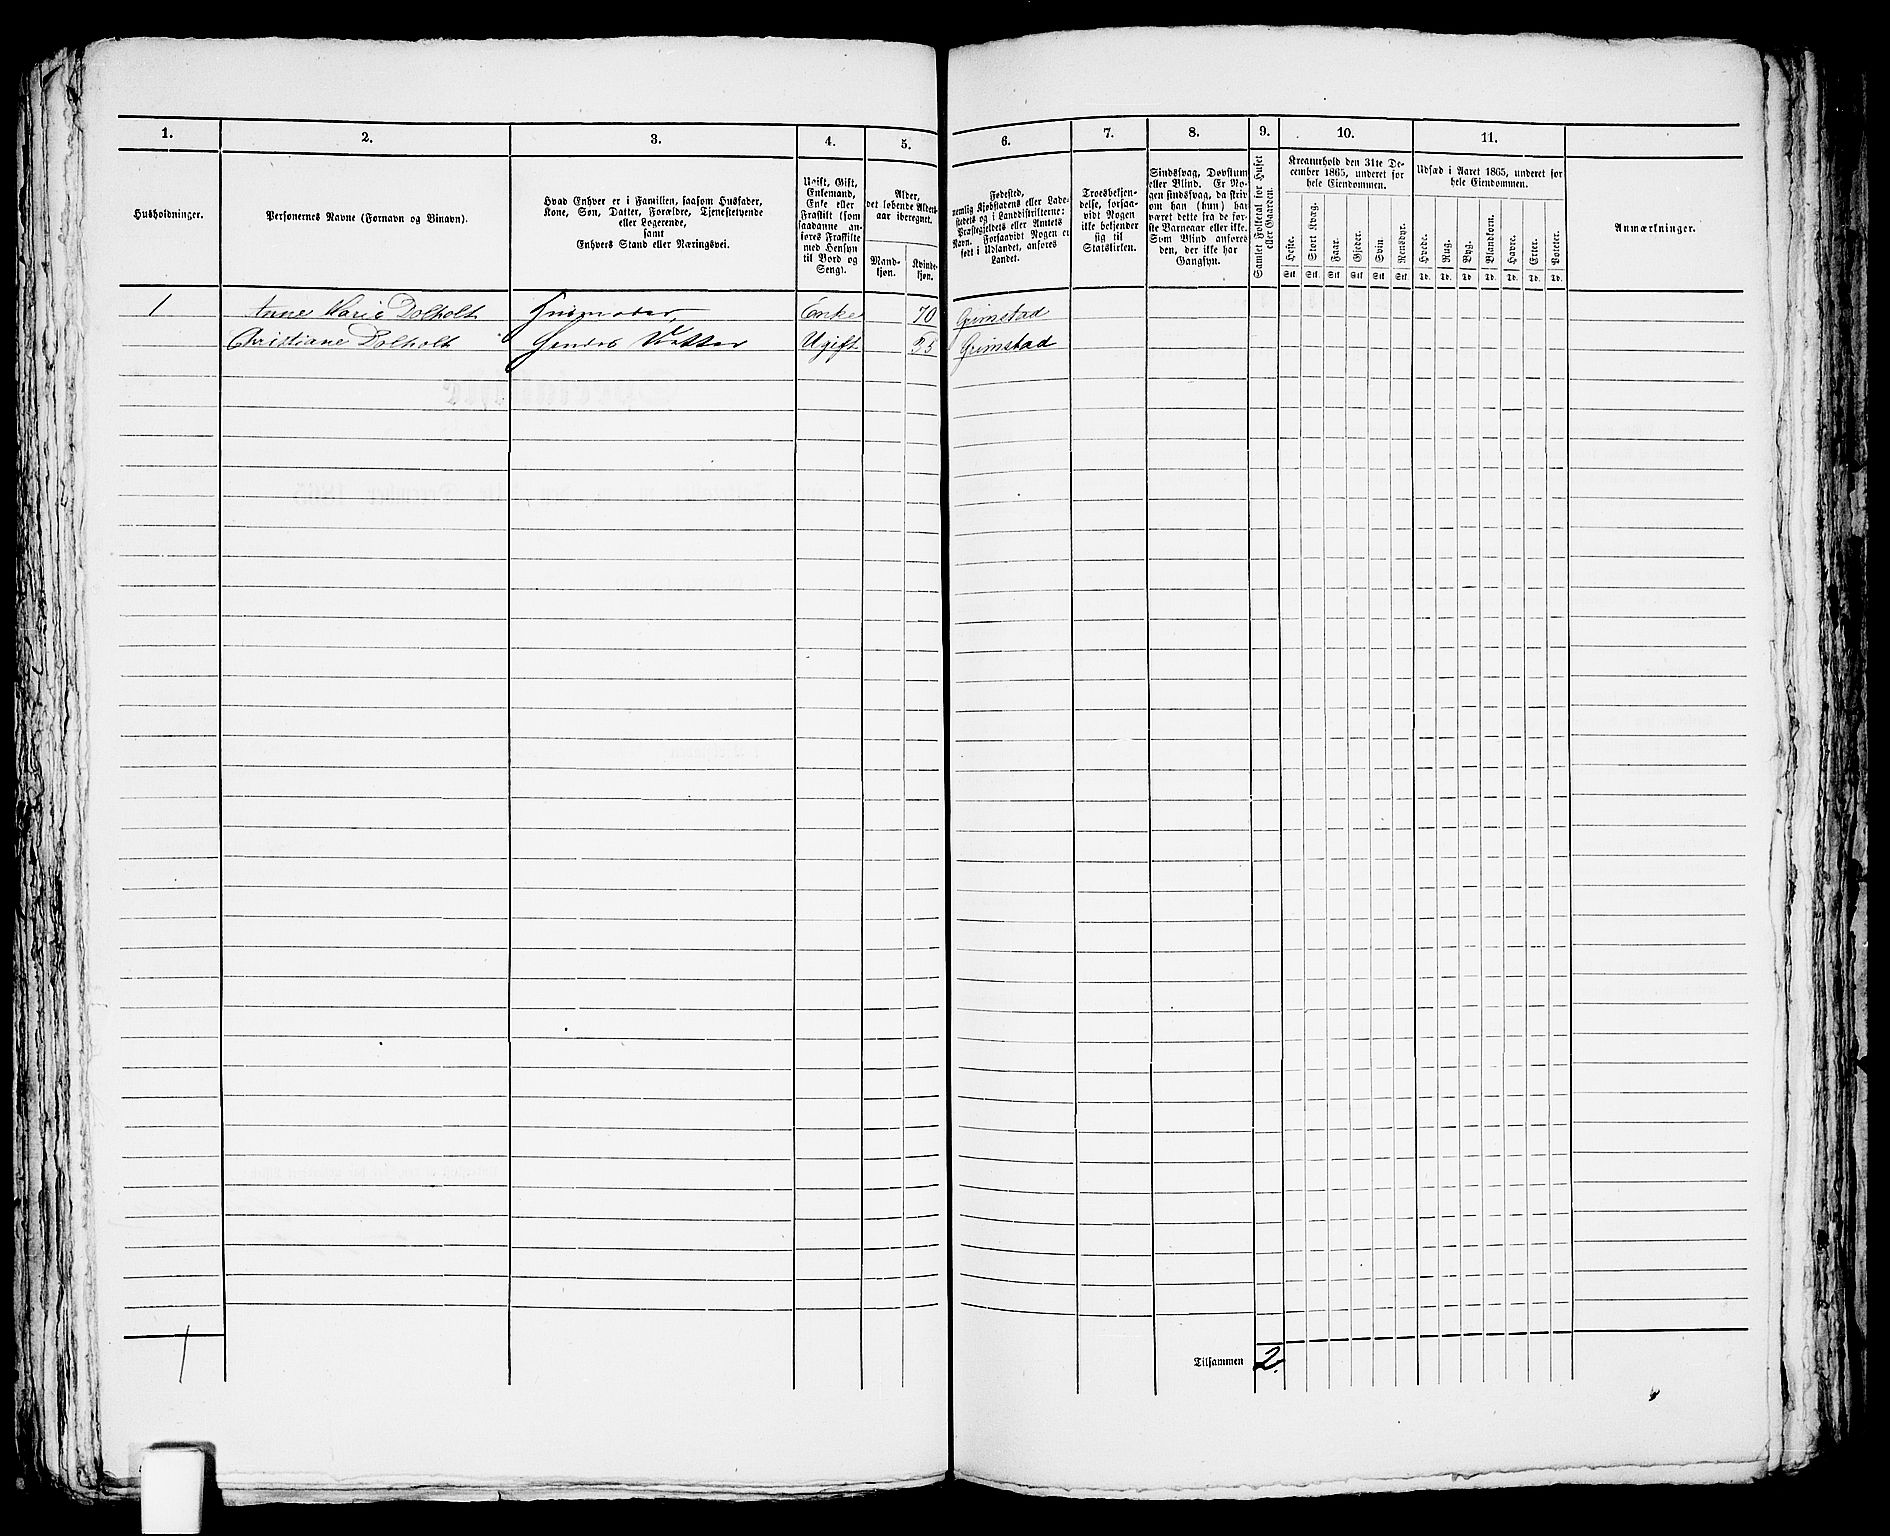 1. 2. 3. 4. 5. 6. 7. 8. 9. 10. 11.
Husholdninger.
Personernes Navne (Fornavn og Binavn).
Hvad Enhver er i Familien, saasom Husfader,
Kone, Søn, Datter, Forældre, Tjenestetyende
eller Logerende,
samt
Enhvers Stand eller Næringsvei.
Ugift, Gift,
Enkemand,
Enke eller
Fraskilt (som
saadanne an-
føres Fraskilte
med Hensyn
til Bord og
Seng).
Alder,
det løbende Alders-
aar iberegnet.
Mand-
kjøn.
Kvinde-
kjøn.
Fødested,
nemlig Kjøbstadens eller Lade-
stedets og i Landdistrikterne:
Præstegjeldets eller Amtets
Navn. Forsaavidt Nogen er
født i Udlandet, anføres
Landet.
Troesbekjen-
delse, forsaa-
vidt Nogen
ikke bekjender
sig til
Statskirken.
Sindssvag, Døvstum
eller Blind. Er No-
gen sindssvag, da skriv
om han (hun) har
været dette fra de før-
ste Barneaar eller ikke.
Som Blind anføres
den, der ikke har
Gangsyn.
Samlet Folketal for Huset
eller Gaarden.
Kreaturhold den 31te De-
cember 1865, underet for
hele Eiendommen.
Heste. Stort Kvæg. Faar. Gjeder. Svin. Rensdyr.
Stk. Stk. Stk. Stk. Stk. Stk.
Udsæd i Aaret 1865, underet for
hele Eiendommen.
Hvede. Rug. Byg. Blandkorn. Havre. Erter. Poteter.
Td. Td. Td. Td. Td. Td. Td.
Anmærkninger.
1 Anne Marie Dolholt Husmoder, Enke 70 Grimstad
Christiane Dolholt Hendes Datter Ugift 35 Grimstad
1
Tilsammen 2.